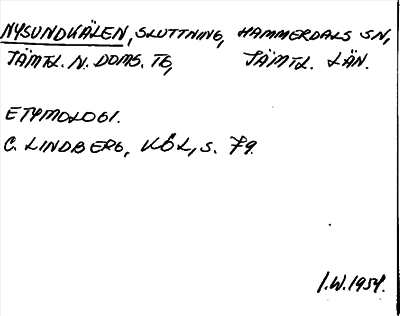 NYSUNDKÄLEN, SLUTTNING, HAMMERDALS SN,
JÄMTL. N. DOMS. TG, JÄMTL. LÄN.
ETYMOLOGI.
C. LINDBERG, KÖL, S. 79.
I.W. 1954.